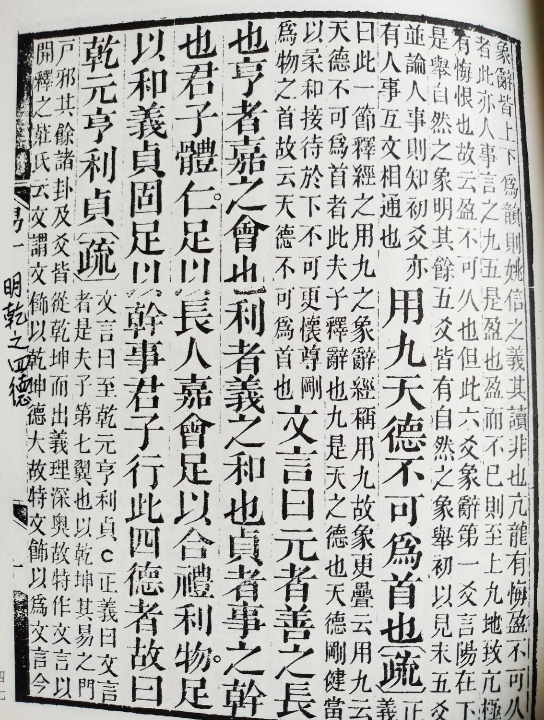 象辭皆上下爲韻則姚信之義其讀非也亢龍有悔盈不可久
者此亦人事言之九五是盈也盈而不已則至上九地致亢極
有悔恨也故云盈不可久也但此六爻象辭第一爻言陽在下
是舉自然之象明其餘五爻皆有自然之象舉初以見末五爻
並論人事則知初爻亦
有人事互文相通也
用九天德不可爲首也
疏
正義
曰此一節釋經之用九之象辭經稱用九故象更疊云用九云
天德不可爲首者此夫子釋辭也九是天之德也天德剛健當
以柔和接待於下不可更懷尊剛
爲物之首故云天德不可爲首也
文言曰元者善之長
也亨者嘉之會也利者義之和也貞者事之幹
也君子體仁。足以長人嘉會足以合禮利物。足
以和義貞固足以幹事君子行此四德者故曰
乾元亨利貞
疏
文言曰至乾元亨利貞○正義曰文言
者是夫子第七翼也以乾坤其易之門
戶邪其餘諸卦及爻皆從乾坤而出義理深奧故特作文言以
開釋之莊氏云文謂文飾以乾坤德大故特文飾以爲文言今
易一
明乾之四德
一
四七